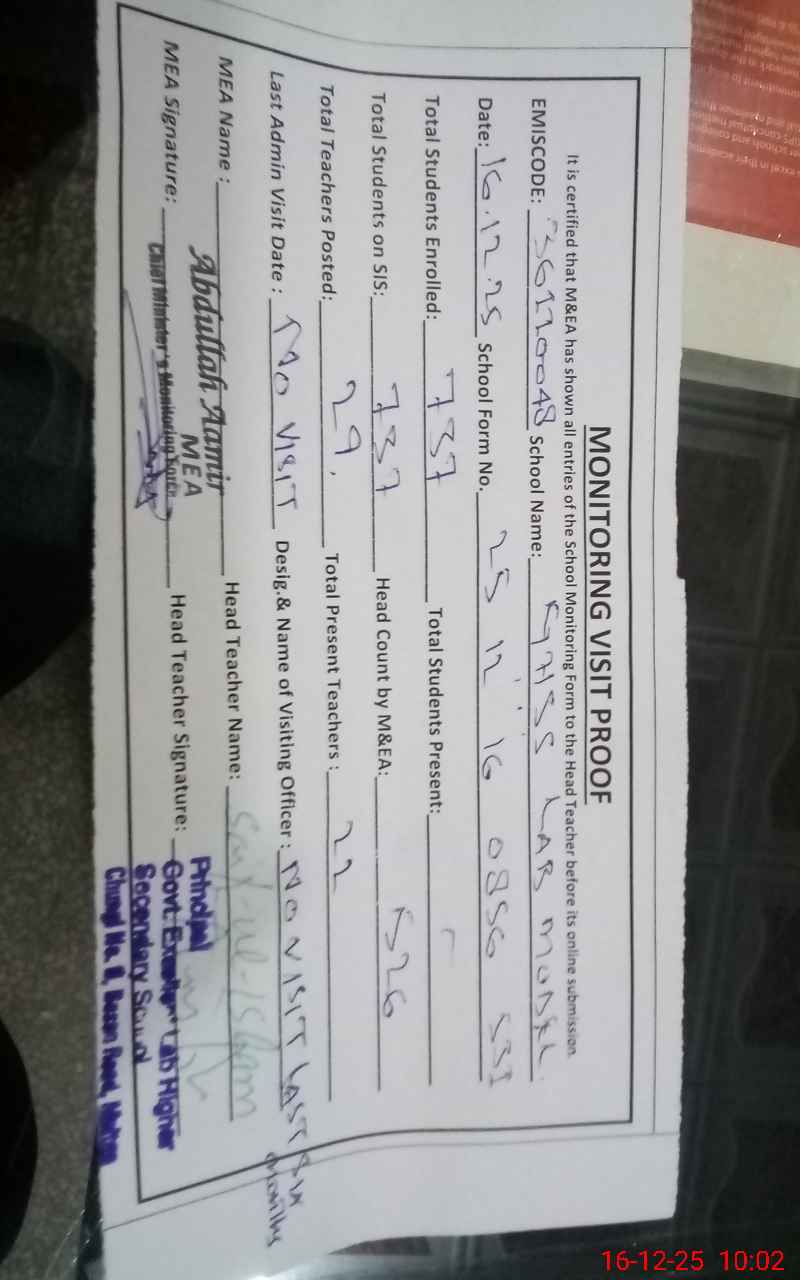 MONITORING VISIT PROOF
It is certified that M&EA has shown all entries of the School Monitoring Form to the Head Teacher before its online submission.
EMISCODE: 36110048 School Name: GHSS LAB MODEL
Date: 16.12.25 School Form No. 25 12 16 0856 531
Total Students Enrolled: 737 Total Students Present:
Total Students on SIS: 737 Head Count by M&EA: 526
Total Teachers Posted: 29. Total Present Teachers : 22
Last Admin Visit Date : No VISIT Desig.& Name of Visiting Officer : No VISIT LAST SIX months
MEA Name : Abdullah Aamir Head Teacher Name: Saif-ul-Islam
MEA
MEA Signature: Chief Minister's Monitoring Force Head Teacher Signature:
Principal
Govt. Lab Higher
Secondary School
Chungi No. 6, Bosan Road, Multan
16-12-25 10:02